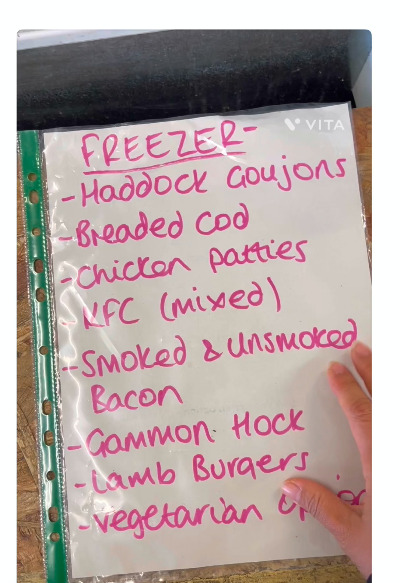 VITA
FREEZER-
-Haddock Goujons
-Breaded Cod
-Chicken patties
- KFC (mixed)
-Smoked & Unsmoked
Bacon
-Gammon Hock
-Lamb Burgers
-Vegetarian